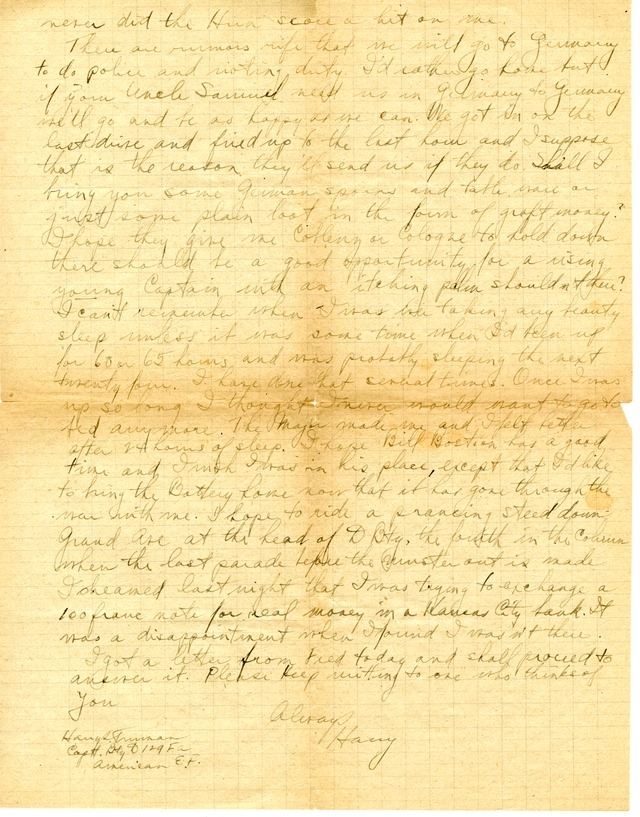 never did the Hun score a hit on me.
There are rumors rife that we will go to Germany
to do police and rioting duty. I'd rather go home but
if your Uncle Samuel needs us in Germany to Germany
we'll go and be as happy as we can. We got in on the
last drive and fired up to the last hour and I suppose
that is the reason they'll send us if they do. Shall I
bring you some German spoons and table ware or
just some plain loot in the form of graft money?
I hope they give me Coblenz or Cologne to hold down
there should be a good opportunity for a rising
young Captain with an itching palm shouldn't there?
I can't remember when I was ever taking any beauty
sleep unless it was some time when I'd been up
for 60 or 65 hours and was probably sleeping the next
twenty four. I have done that several times. Once I was
up so long I thought I never would want to go to
bed anymore. The Major made me and I felt better
after 24 hours of sleep. I hope Bill has a good
time and I wish I was in his place, except that I'd like
to bring the Battery home now that it has gone through the
war with me. I hope to ride a prancing steed down
Grand Ave at the head of D Bty, the fourth in the Column
when the last parade before the muster out is made
I dreamed last night that I was trying to exchange a
100 franc note for real money in a Kansas City bank. It
was a disappointment when I found I wasn't there.
I got a letter from Fred today and shall proceed to
answer it. Please keep writing to one who thinks of
You
Always
Harry
Harry S. Truman
Capt. Bty D 129 F.A.
American E.F.